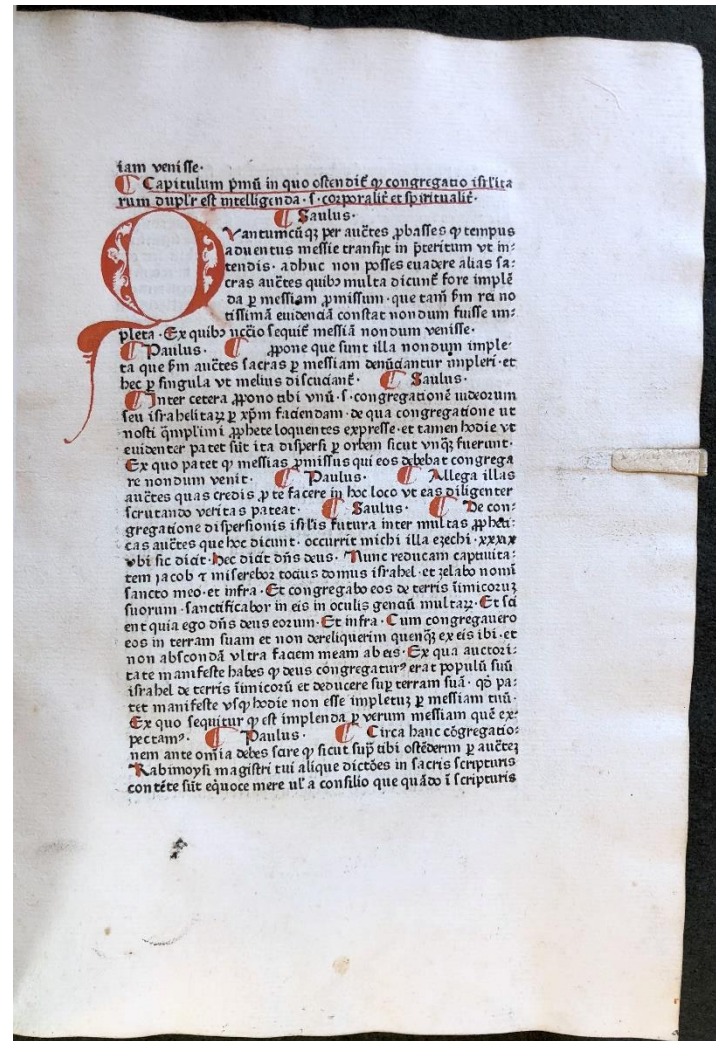 iam venisse·
¶ Capitulum p̄mū in quo ostendit̄ ꝙ congregatio isrl'ita
rum dupl'r est intelligenda · s · corporalit̄ et spiritualit̄·
¶ Saulus·
QVantumcūqꝫ per auct̄es ꝓbasses ꝙ tempus
aduentus messie transijt in p̄teritum vt in⸗
tendis· adhuc non posses euadere alias sa⸗
cras auct̄es quibꝰ multa dicunt̄ fore implē
da ꝑ messiam ꝓmissum· que tam̄ ẜm rei no
tissimā euidenciā constat nondum fuisse im⸗
pleta · Ex quibꝰ sequit̄ messiā nondum venisse·
¶ Paulus· ¶ ꝓpone que sunt illa nondum imple⸗
ta que ẜm auct̄es sacras ꝑ messiam denūciantur impleri· et
hec ꝑ singula vt melius discuciant̄· ¶ Saulus·
¶ Inter cetera ꝓpono tibi vnū· s· congregationē iudeorum
seu israhelitaꝝ ꝑ xp̄m faciendam· de qua congregatione ut
nosti q̄mplimi ꝓphete loquentes expresse· et tamen hodie vt
euidenter patet sūt ita dispersi ꝑ orbem sicut vnqꝫ fuerunt·
Ex quo patet ꝙ messias ꝓmissus qui eos debebat congrega
re nondum venit· ¶ Paulus· ¶ Allega illas
auct̄es quas credis ꝓ te facere in hoc loco vt eas diligenter
scrutando veritas pateat· ¶ Saulus· ¶ De con⸗
gregatione dispersionis isrl'is futura inter multas ꝓphēi⸗
cas auct̄es que hoc dicunt· occurrit michi illa ezechi· xxxix
vbi sic dicit· hec dicit dn̄s deus· Nunc reducam captiuita⸗
tem jacob ⁊ miserebor tocius domus israhel· et zelabo nomī
sancto meo· et infra· Et congregabo eos de terris īimicoruꝫ
suorum· sanctificabor in eis in oculis genciū multaꝝ· Et sci
ent quia ego dn̄s deus eorum· Et infra· Cum congregauero
eos in terram suam et non dereliquerim quenqꝫ ex eis ibi· et
non abscondā vltra faciem meam ab eis· Ex qua auctori⸗
tate manifeste habes ꝙ deus cōgregaturꝰ erat populū suū
israhel de terris īimicorū et deducere suꝑ terram suā· qd̄ pa⸗
tet manifeste vsqꝫ hodie non esse impletuꝫ ꝑ messiam tuū·
Ex quo sequitur ꝙ est implenda ꝑ verum messiam quē ex⸗
pectamꝰ· ¶ Paulus· ¶ Circa hanc cōgregatio⸗
nem ante om̄ia debes scire ꝙ sicut sup̄ tibi ostēderim ꝑ auct̄eꝫ
Rabimoysi magistri tui alique dictōes in sacris scripturis
contēte sūt eq̄uoce mere ul' a consilio que quādo ī scripturis